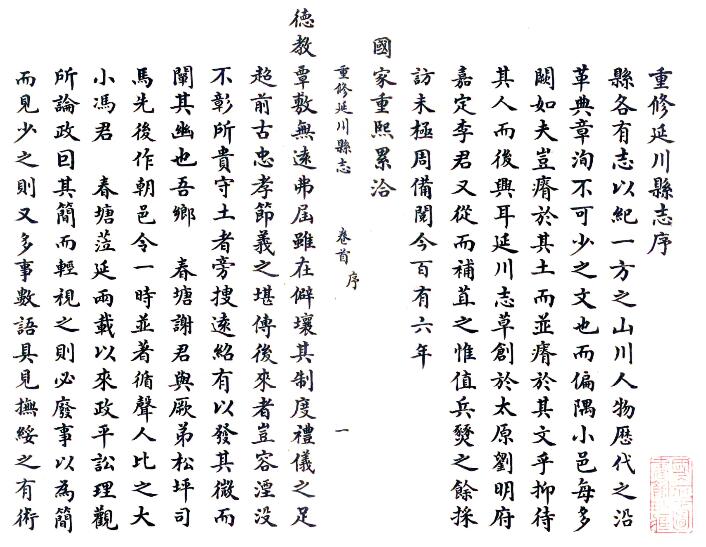 重修延川縣志序
縣各有志以紀一方之山川人物歷代之沿
革典章洵不可少之文也而偏隅小邑每多
闕如夫豈瘠於其土而並瘠於其文乎抑待
其人而後興耳延川志草創於太原劉明府
嘉定李君又從而補葺之惟值兵燹之餘採
訪未極周備閱今百有六年
國家重熙累洽
重修延川縣志 卷首 序 一
德教覃敷無遠弗屆雖在僻壤其制度禮儀之足
超前古忠孝節義之堪傳後來者豈容湮没
不彰所貴守土者旁搜遠紹有以發其微而
闡其幽也吾鄉 春塘謝君與厥弟松坪司
馬先後作朝邑令一時並著循聲人比之大
小馮君 春塘蒞延兩載以來政平訟理觀
所論政曰其簡而輕視之則必廢事以為簡
而見少之則又多事數語具見撫綏之有術